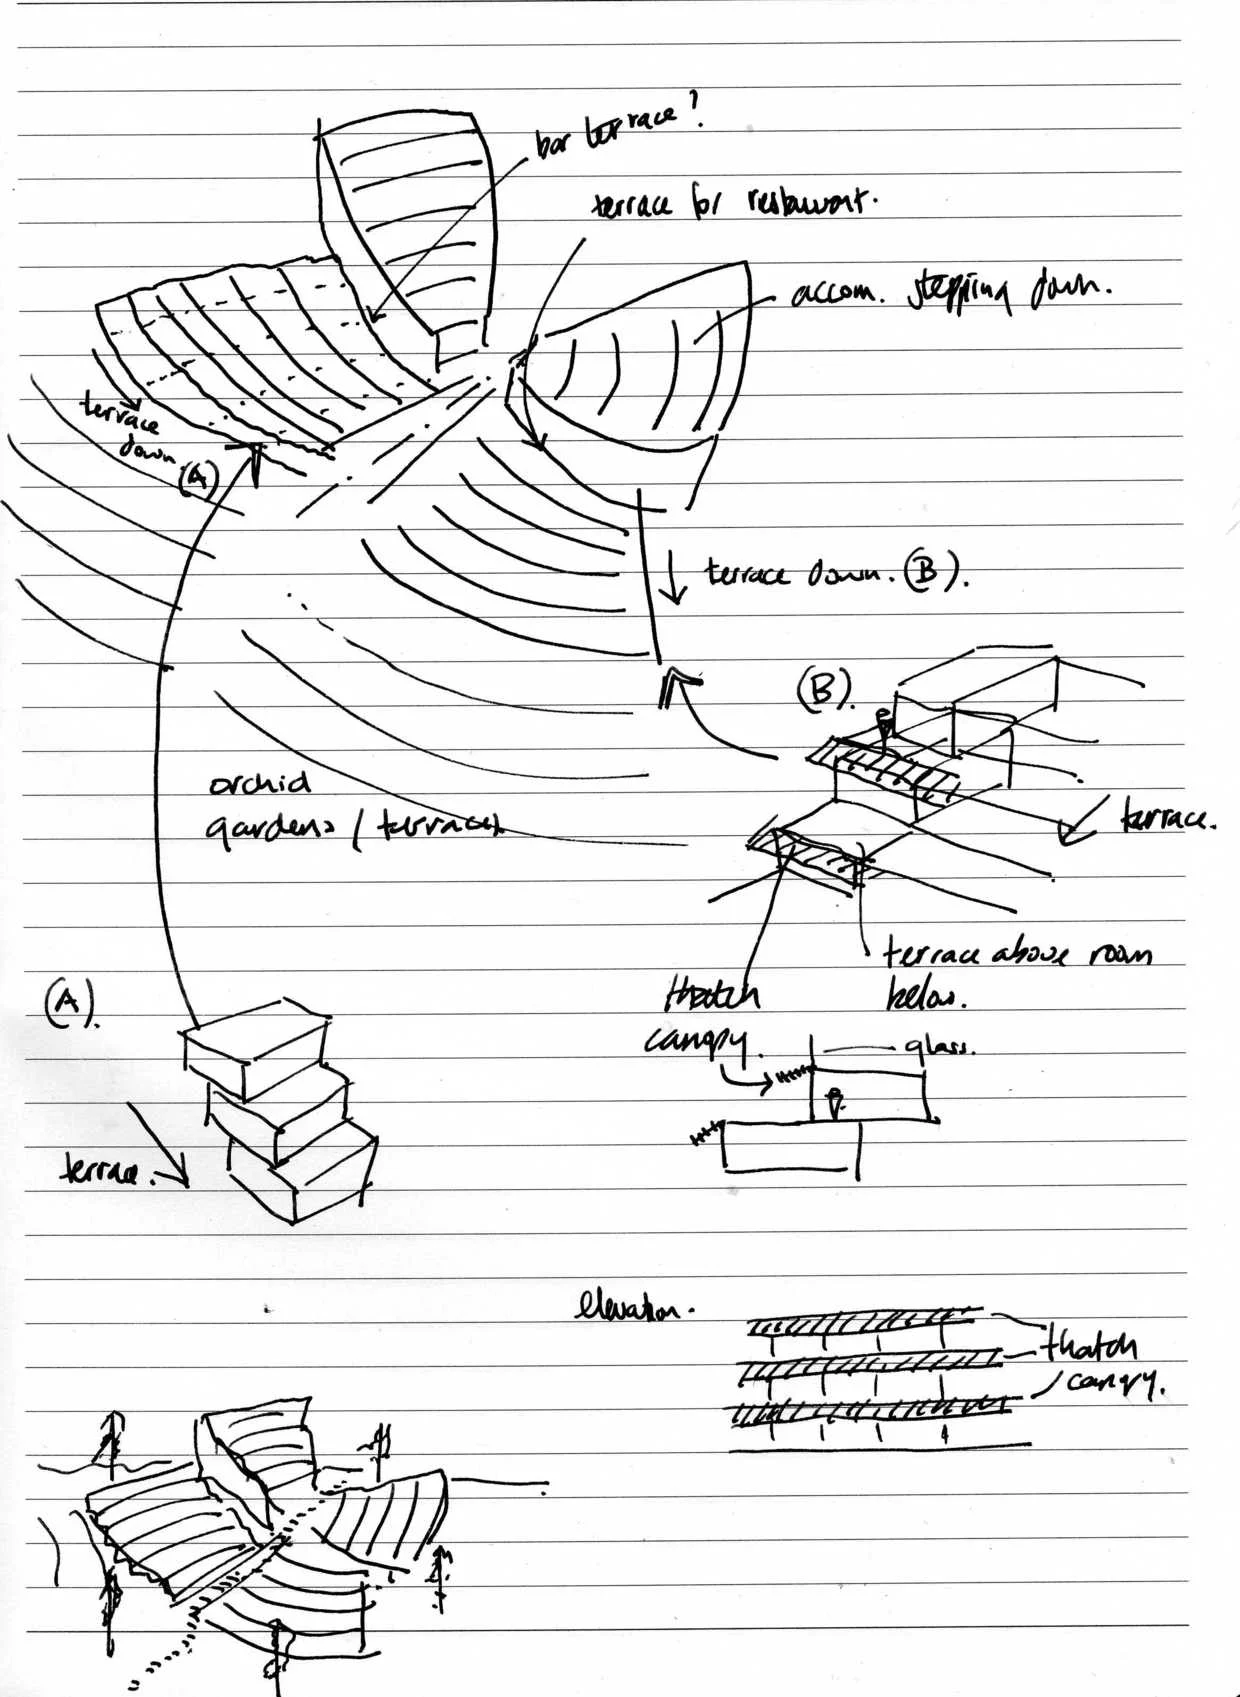 bar terrace?
terrace for restaurant.
accom. stepping down.
terrace
down.
(A)
terrace down. (B).
(B).
orchid
gardens / terraces.
terrace.
terrace above room
below.
thatch
canopy.
glass.
(A).
terrace.
elevation.
thatch
canopy.